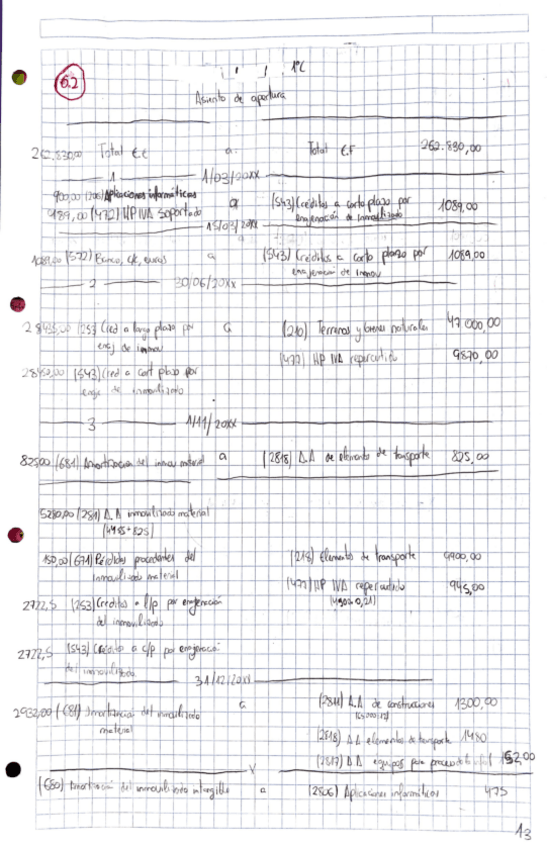 6.2
1ºC
Asiento de apertura
262.830,00 Total a Total 262.830,00
1 1/03/20XX
900,00 (206) Aplicaciones informáticas a (543) Créditos a corto plazo por 1089,00
189,00 (472) HP IVA soportado enajenación de inmovilizado
15/03/20XX
1089,00 (572) Banco, c/c, euros a (543) Créditos a corto plazo por 1089,00
enajenación de inmov
2 30/06/20XX
(253) Cred a largo plazo por a (210) Terrenos y bienes naturales 47 000,00
enaj de inmov (477) HP IVA repercutido 9870,00
(543) Cred a cort plazo por
enaje de inmovilizado
3 1/11/20XX
825,00 (681) Amortización del inmov material a (2818) A.A de elementos de transporte 825,00
5280,00 (281) A.A inmovilizado material
(4455+825)
150,00 (671) Pérdidas procedentes del (218) Elementos de transporte 9900,00
inmovilizado material (477) HP IVA repercutido 945,00
2722,5 (253) Creditos a l/p por enajenación
del inmovilizado
2722,5 (543) Créditos a c/p por enajenación
del inmovilizado
31/12/20XX
2932,00 (681) Amortización del inmovilizado a (2811) A.A de construcciones 1300,00
material
(2818) A.A elementos de transporte 1480
(2817) A.A equipos para proceso de 152,00
(680) Amortización del inmovilizado intangible a (2806) Aplicaciones informáticas 475
13